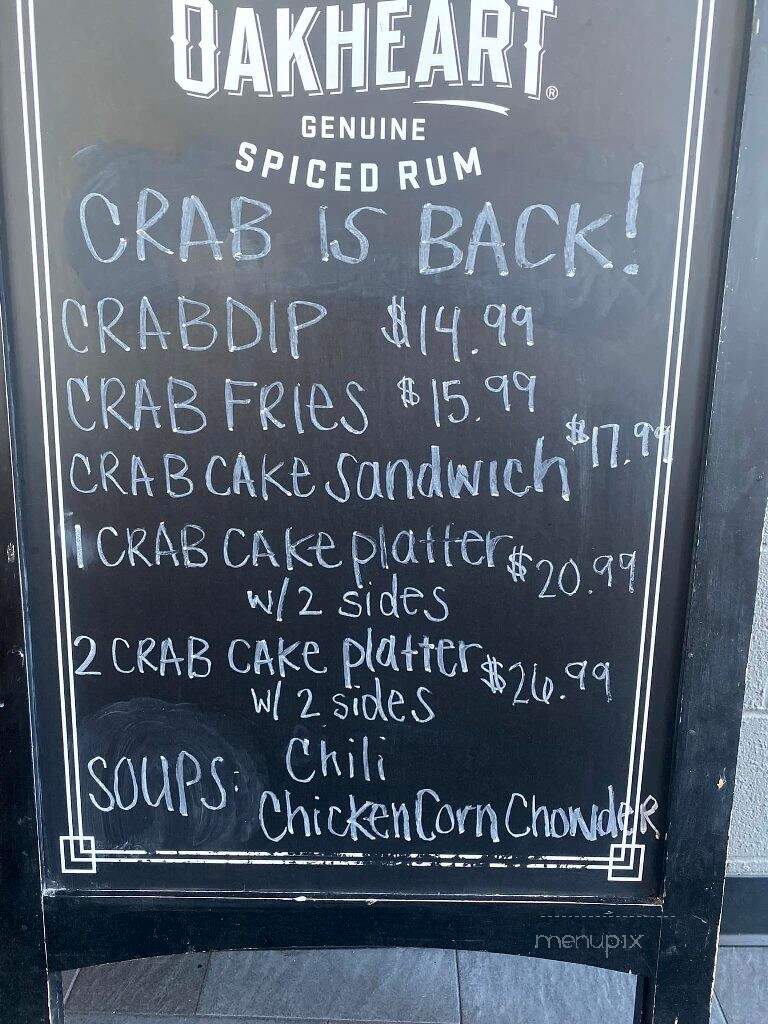 OAKHEART®
GENUINE
SPICED RUM
CRAB IS BACK!
CRAB DIP $14.99
CRAB FRIES $15.99
CRAB CAKE Sandwich $17.99
1 CRAB CAKE platter $20.99
w/2 sides
2 CRAB CAKE platter $26.99
w/ 2 sides
SOUPS: Chili
Chicken Corn Chowder
menupix